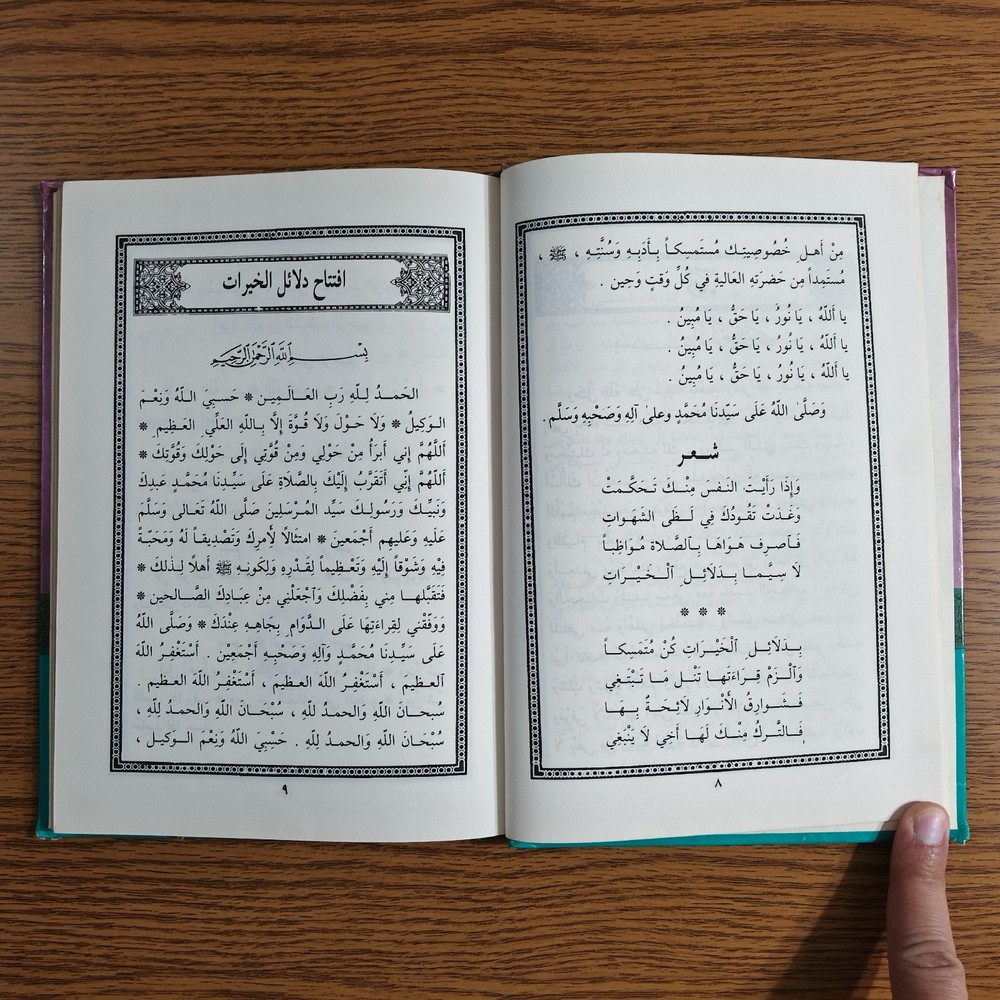 مِنْ أَهـلِ خُصُوصِيتِـكَ مُستَمسِكـاً بِـأَدَبِـهِ وَسُنَّتِـهِ ، ﷺ ،
مُستَمِداً مِن حَضرَتِهِ العَاليةِ في كُلِّ وَقتٍ وَحِين .
يا أَللَّهُ ، يَا نُورُ ، يَا حَقُّ ، يَا مُبِينُ .
يا أَللَّهُ ، يَا نُورُ ، يَا حَقُّ ، يَا مُبِينُ .
يا أَللَّهُ ، يَا نُورُ ، يَا حَقُّ ، يَا مُبِينُ .
وَصَلَّى اللَّهُ عَلَى سَيِّدنَا مُحَمَّدٍ وعلىٰ آلِهِ وَصَحْبِهِ وَسَلَّم .
شـعـر
وَإِذَا رَأَيْتَ النَـفسَ مِنْـكَ تَـحَكَّـمَتْ
وَغَدَتْ تَقُودُكَ فِي لَـظَى الشَهَـواتِ
فَـاصرِف هَـوَاهَا بِـالصَّلاةِ مُـوَاظِبـاً
لَا سِيَّمـا بِـدَلَائـلِ الْـخَيْـرَاتِ
* * *
بِـدَلَائـلِ الْخَيْـرَاتِ كُنْ مُتَمَسِكـاً
وَالْـزَمْ قِـرَاءَتَهـا تَنَـلْ مَـا تَبْتَغِي
فَـشَـوارِقُ الأَنْـوَارِ لَائِـحَـةٌ بِـهَـا
فَـالتَّركُ مِنْـكَ لَهَـا أَخِي لَا يَنْبَغِي
٨
افتتاح دلائل الخيرات
بِسْـــمِ اللَّهِ الرَّحْمَنِ الرَّحِيمِ
الحَمـدُ لـلَّهِ رَبِ العَـالَـمِين * حَسبِيَ اللَّهُ وَنِعْمَ
الوَكِيلُ * وَلَا حَوْلَ وَلَا قُـوَّةَ إِلَّا بِـاللهِ العَلِّي العَظِيمِ *
أَللَّهُمَّ إِني أَبرَأُ مِنْ حَوْلِي وَمِنْ قُوَّتِي إِلَى حَوْلِكَ وَقُوَّتِكَ *
أَللَّهُمَّ إِنِّي أَتَقَرَّبُ إِلَيْكَ بِالصَّلاةِ عَلَى سَيِّدِنَا مُحَمَّدٍ عَبدِكَ
وَنَبيِّكَ وَرَسُولِـكَ سَيِّدِ المُرْسَلِينَ صَلَّى اللَّهُ تَعَالى وَسَلَّمَ
عَلَيهِ وَعَليهِم أَجْمَعينَ * امتثالًا لأَمرِكَ وَتَصْدِيقـاً لَهُ وَمَحَبَّةً
فِيْهِ وَشَوْقاً إِلَيْهِ وَتَعْظِيماً لِقَدْرِهِ وَلِكونِـهِ ﷺ أَهلًا لِـذلِكَ *
فَتَقَبَّلهـا مِني بِفَضْلِكَ وَاجْعَلْنِي مِنْ عِبَادِكَ الصَّـالحين *
وَوفِّقْني لِقِراءَتِهَا عَلَى الـدَّوَامِ بِجَاهِـهِ عِنْدَكَ * وَصَلَّى اللَّهُ
عَلَى سَيِّـدِنَا مُحَمَّدٍ وَآلِهِ وَصَحْبِـهِ أَجْمَعِيْنَ . أَسْتَغْفِرُ اللَّهَ
العـظيمَ ، أَسْتَغْفِرُ اللَّهَ العظيمَ ، أَسْتَغْفِرُ اللَّهَ العظيمَ .
سُبحـانَ اللَّهِ وَالحمدُ للَّهِ ، سُبْحَانَ اللَّهِ وَالحمدُ لِلَّهِ ،
سُبْحَانَ اللَّهِ وَالحمدُ لِلَّهِ . حَسْبِيَ اللَّهُ وَنِعْمَ الـوَكيـل ،
٩